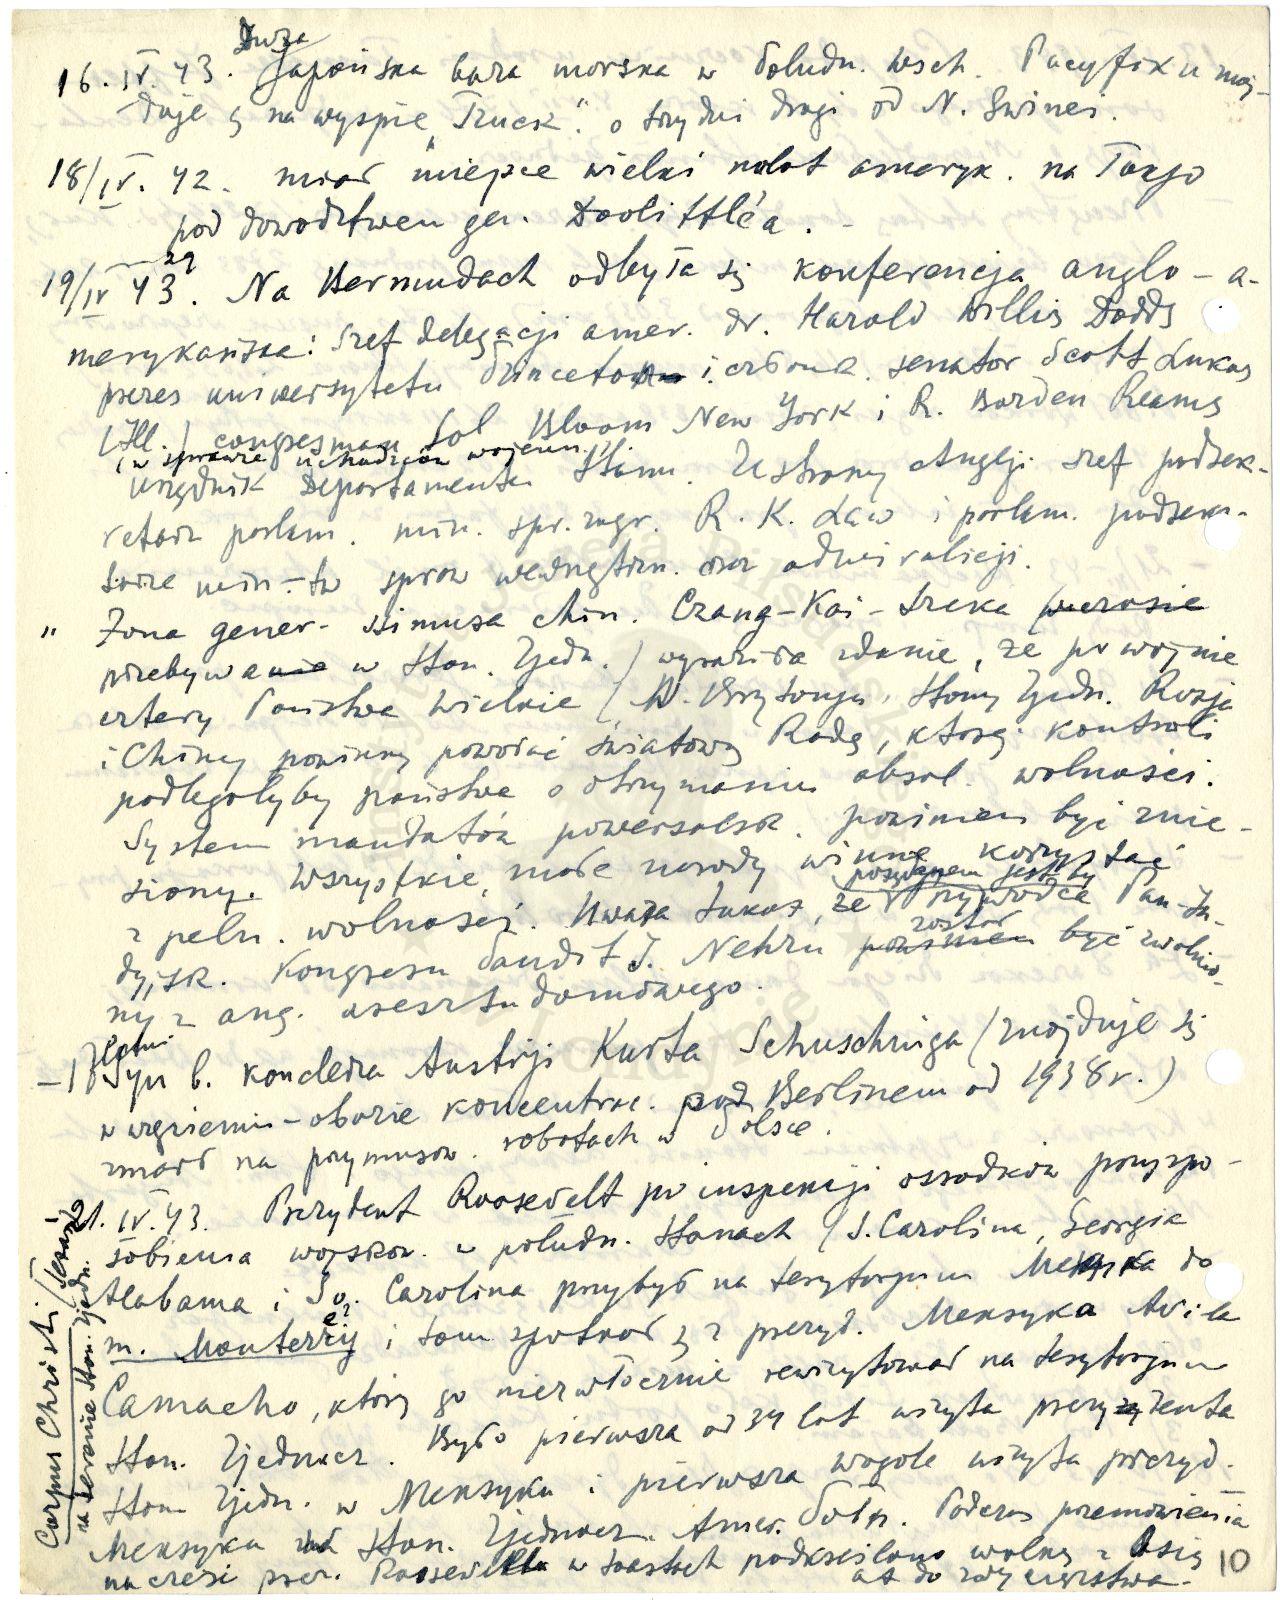 Duża
16. IV. 43. Japońska baza morska w Połudn. Wsch. Pacyfiku znaj-
duje się na wyspie "Truck" o trzy dni drogi od N. Gwinei.
18/IV. 42. miał miejsce wielki nalot ameryk. na Tokjo
pod dowództwem gen. Doolittle'a. -
19/IV 43. 29 Na Bermudach odbyła się konferencja anglo-a-
merykańska: szef delegacji amer. dr. Harold Willis Dodds
prezes uniwersytetu Princeton i członk. senator Scott Lukas
(Ill.) congresman Sol Bloom New York i R. Borden Reams
(w sprawie uchodźców wojenn.)
urzędnik Departamentu Stanu. Ze strony Anglji szef podsek-
retarz parlam. min. spr. zagr. R. K. Law i parlam. podsekre-
tarze min-tw spraw wewnętrzn. oraz admiralicji.
" Żona gener-issimusa chin. Czang-Kai-Szeka (w czasie
przebywanie w Stan. Zjedn.) wyraziła zdanie, że po wojnie
cztery Państwa Wielkie (W. Brytanja, Stany Zjedn. Rosja
i Chiny powinny powołać światową Radę, której kontroli
podlegałyby państwa o otrzymaniu absol. wolności.
System mandatów powersalsk. powinien być znie-
siony. Wszystkie, małe narody winne korzystać
z pełn. wolności. Uważa także, że pożądanem jest by przywódca Pan-In-
dyjsk. Kongresu Pandit J. Nehru powinien być został zwolnio-
ny z ang. aresztu domowego.
- 18 letni Syn b. kanclerza Austrji Kurta Schuschniga (znajduje się
w więzieniu-obozie koncentrac. pod Berlinem od 1938 r.)
zmarł na przymusow. robotach w Polsce.
21. IV. 43. Prezydent Roosevelt po inspekcji ośrodków przyspo-
sobienia wojskow. w połudn. Stanach (S. Carolina, Georgia
Alabama i So. Carolina przybył na terytorjum Meksyka do
m. Monterrey i tam spotkał się z prezyd. Meksyka Avila
Camacho, który go niezwłocznie rewizytował na terytorjum
Stan. Zjednocz. Było pierwsza od 34 lat wizyta prezydenta
Stan Zjedn. w Meksyku i pierwsza wogóle wizyta prezyd.
Meksyka Stan. Zjednocz. Amer. Półn. Podczas przemówienia
na cześć prez. Roosevelta w toastach podkreślano walkę z Osią
aż do zwycięrstwa.
Corpus Christi (Texas)
na terenie Stan. Zjedn.
10